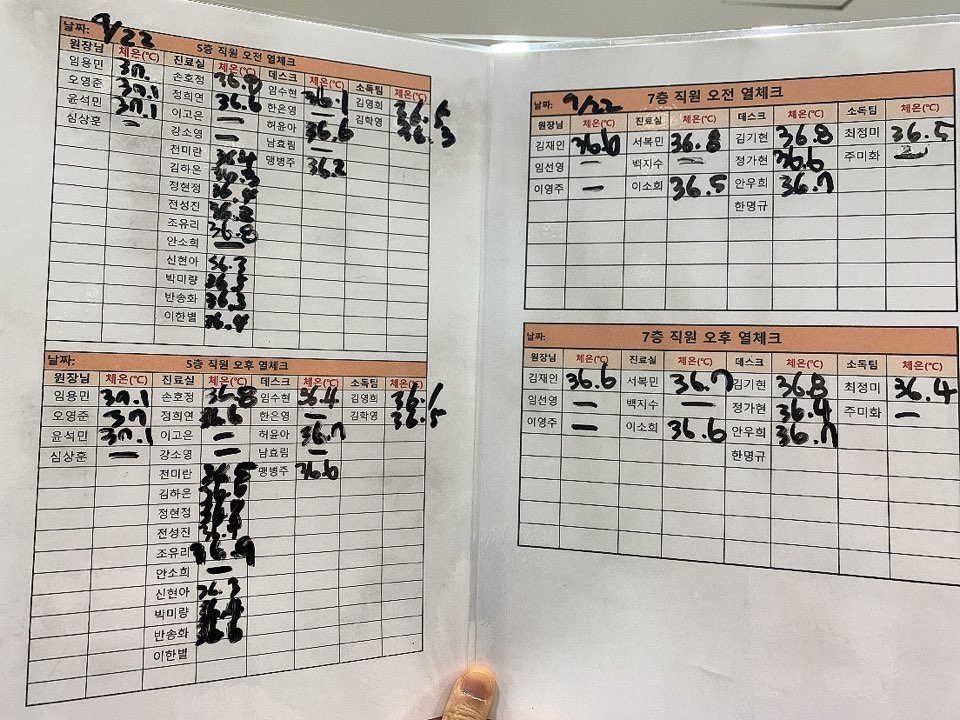 날짜: 9/22 5층 직원 오전 열체크
원장님 체온(℃) 진료실 체온(℃) 데스크 체온(℃) 소독팀 체온(℃)
임용민 37. 손호정 36.8 임수현 36.1 김영희 36.5
오영준 37.1 정희연 36.6 한은영 — 김학영 36.3
윤석민 37.1 이고은 — 허윤아 36.6
심상훈 — 강소영 — 남효림 —
천미란 36.4 맹병주 36.2
김하은
정현정
전성진 36.2
조유리 36.8
안소희 —
신현아 36.3
박미량 36.5
반송화 36.3
이한별 36.4
날짜: 5층 직원 오후 열체크
원장님 체온(℃) 진료실 체온(℃) 데스크 체온(℃) 소독팀 체온(℃)
임용민 37.1 손호정 36.8 임수현 36.4 김영희 36.1
오영준 37 정희연 36.6 한은영 — 김학영 36.5
윤석민 37.1 이고은 — 허윤아 36.7
심상훈 — 강소영 — 남효림 —
천미란 맹병주 36.6
김하은
정현정
전성진
조유리 36.9
안소희 —
신현아 36.3
박미량
반송화 36.6
이한별
날짜: 9/22 7층 직원 오전 열체크
원장님 체온(℃) 진료실 체온(℃) 데스크 체온(℃) 소독팀 체온(℃)
김재인 36.6 서복민 36.8 김기현 36.8 최정미 36.5
임선영 — 백지수 — 정가현 36.6 주미화 —
이영주 — 이소희 36.5 안우희 36.7
한명규
날짜: 7층 직원 오후 열체크
원장님 체온(℃) 진료실 체온(℃) 데스크 체온(℃) 소독팀 체온(℃)
김재인 36.6 서복민 36.7 김기현 36.8 최정미 36.4
임선영 — 백지수 — 정가현 36.4 주미화 —
이영주 — 이소희 36.6 안우희 36.7
한명규